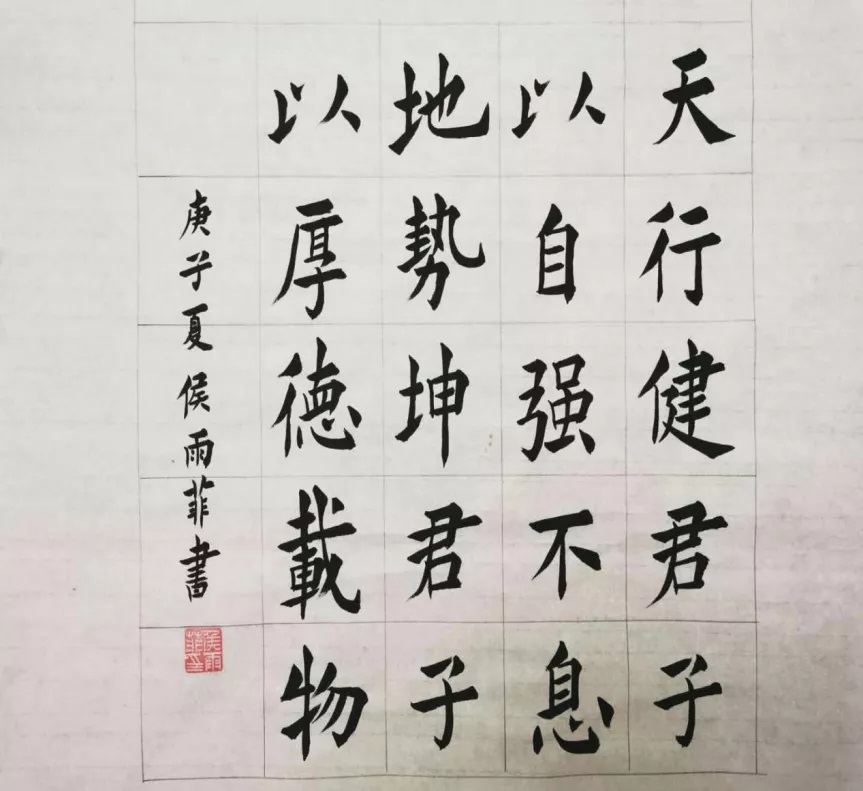 天行健君子
以自强不息
地勢坤君子
以厚德載物
庚子夏侯雨菲書
侯雨菲印